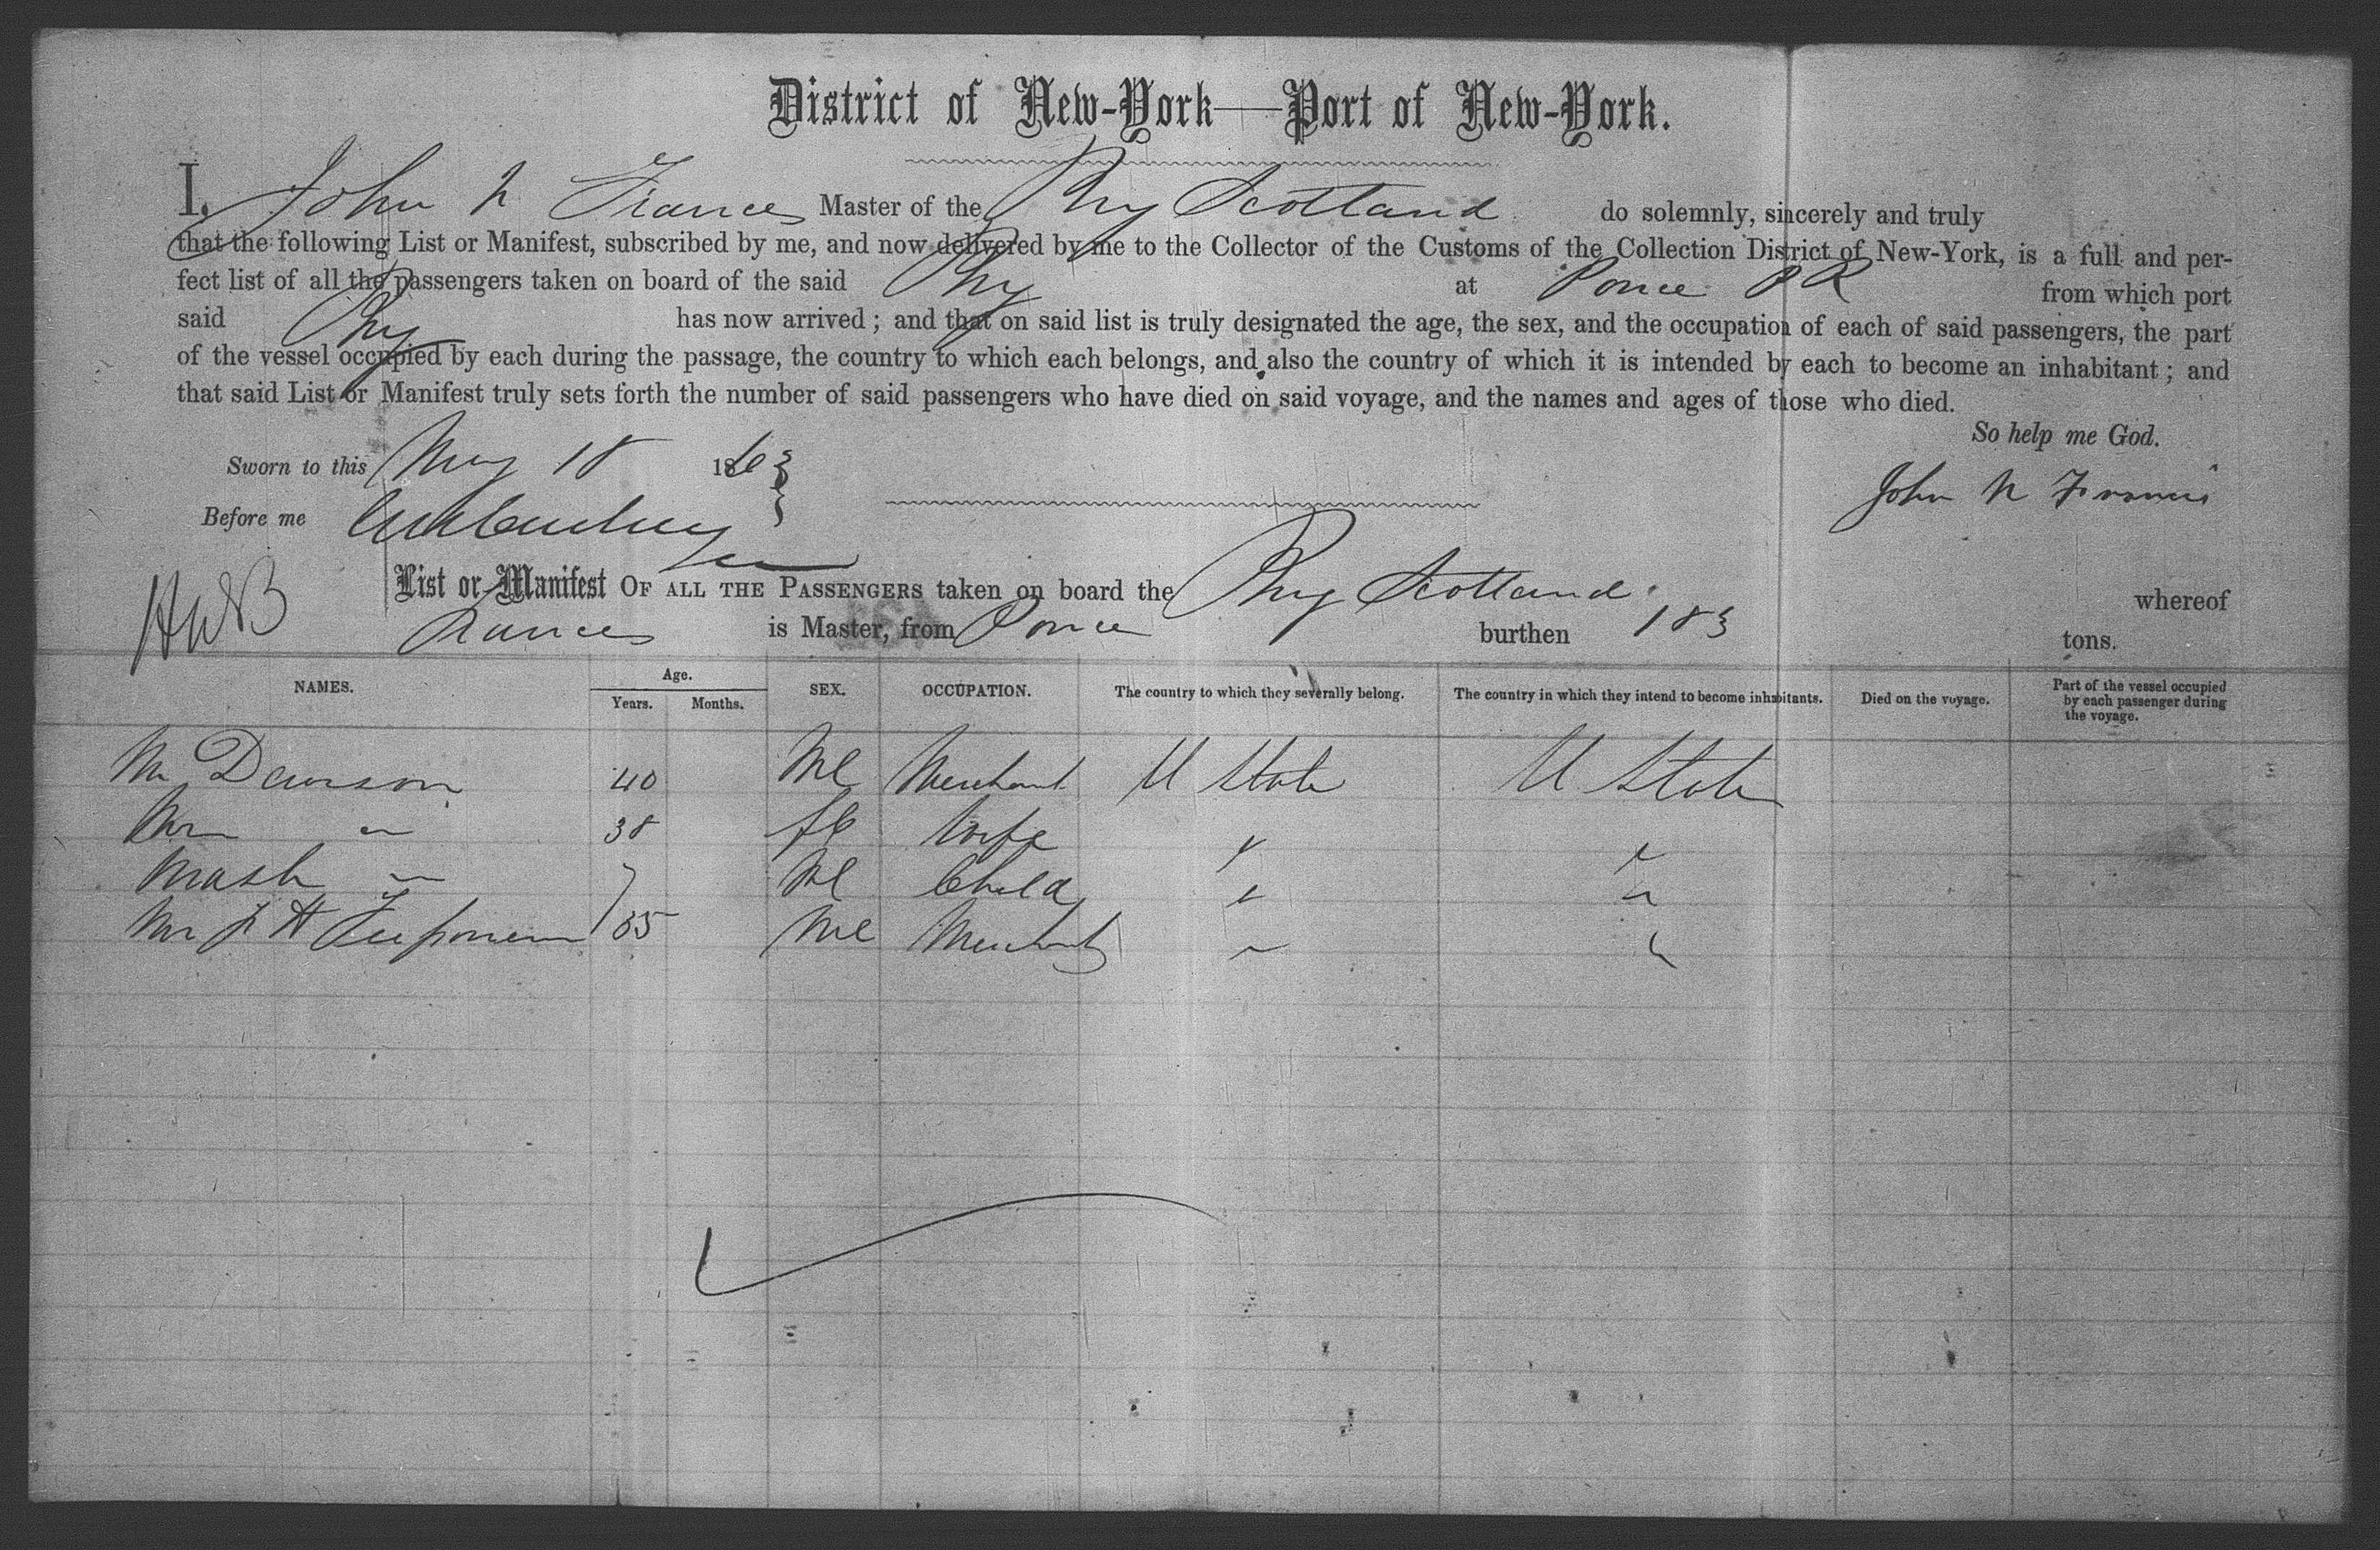 District of New-York—Port of New-York.
I, John N Frances Master of the Brig Scotland do solemnly, sincerely and truly
that the following List or Manifest, subscribed by me, and now delivered by me to the Collector of the Customs of the Collection District of New-York, is a full and per-
fect list of all the passengers taken on board of the said Brig at Ponce P R from which port
said Brig has now arrived; and that on said list is truly designated the age, the sex, and the occupation of each of said passengers, the part
of the vessel occupied by each during the passage, the country to which each belongs, and also the country of which it is intended by each to become an inhabitant; and
that said List or Manifest truly sets forth the number of said passengers who have died on said voyage, and the names and ages of those who died.
So help me God.
Sworn to this May 18 1863
John N Francis
Before me
HWB
List or Manifest OF ALL THE PASSENGERS taken on board the Brig Scotland whereof
Frances is Master, from Ponce burthen 183 tons.
NAMES. Age. Years. Months. SEX. OCCUPATION. The country to which they severally belong. The country in which they intend to become inhabitants. Died on the voyage. Part of the vessel occupied by each passenger during the voyage.
Mr Dawson 40 Ml Merchant U State U State
Mrs " 38 fe Wife " "
Mast " 7 Ml Child " "
Mr J H 35 Ml Merchant " "